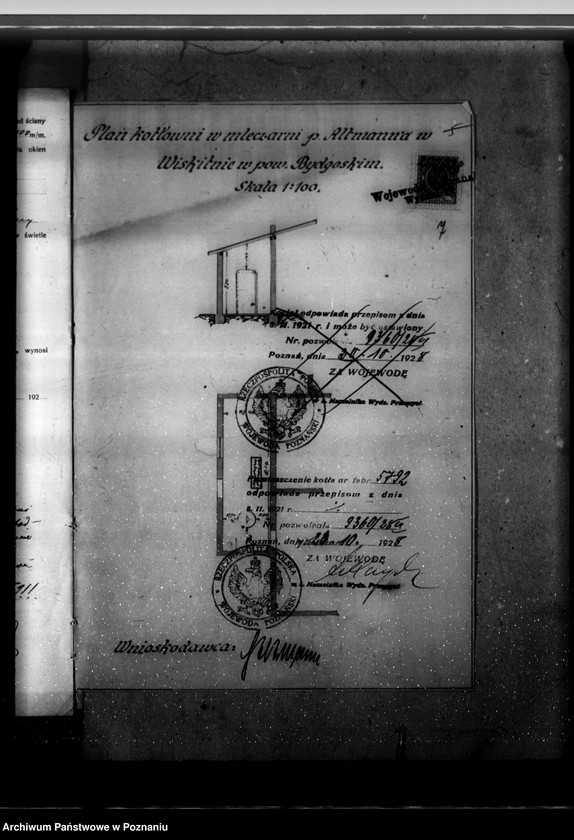 od ściany
m/m.
la okien
w świetle
wynosi
192
Plan kotłowni w mleczarni p. Altmanna w
Wiskitnie w pow. Bydgoskim.
Skala 1:100.
7
odpowiada przepisom z dnia
8. II. 1921 r. i może być ustawiony
Nr. pozwolenia 9360/28
Poznań, dnia 20/10 1928
ZA WOJEWODĘ
z. Naczelnika Wydz. Przemysł
RZECZPOSPOLITA POLSKA
WOJEWODA POZNAŃSKI
Pomieszczenie kotła nr fabr. 5792
odpowiada przepisom z dnia
8. II. 1921 r.
Nr. pozwolenia 9360/28
Poznań, dnia 10. 1928
ZA WOJEWODĘ
z. Naczelnika Wydz.
RZECZPOSPOLITA POLSKA
WOJEWODA POZNAŃSKI
Wnioskodawca:
Archiwum Państwowe w Poznaniu